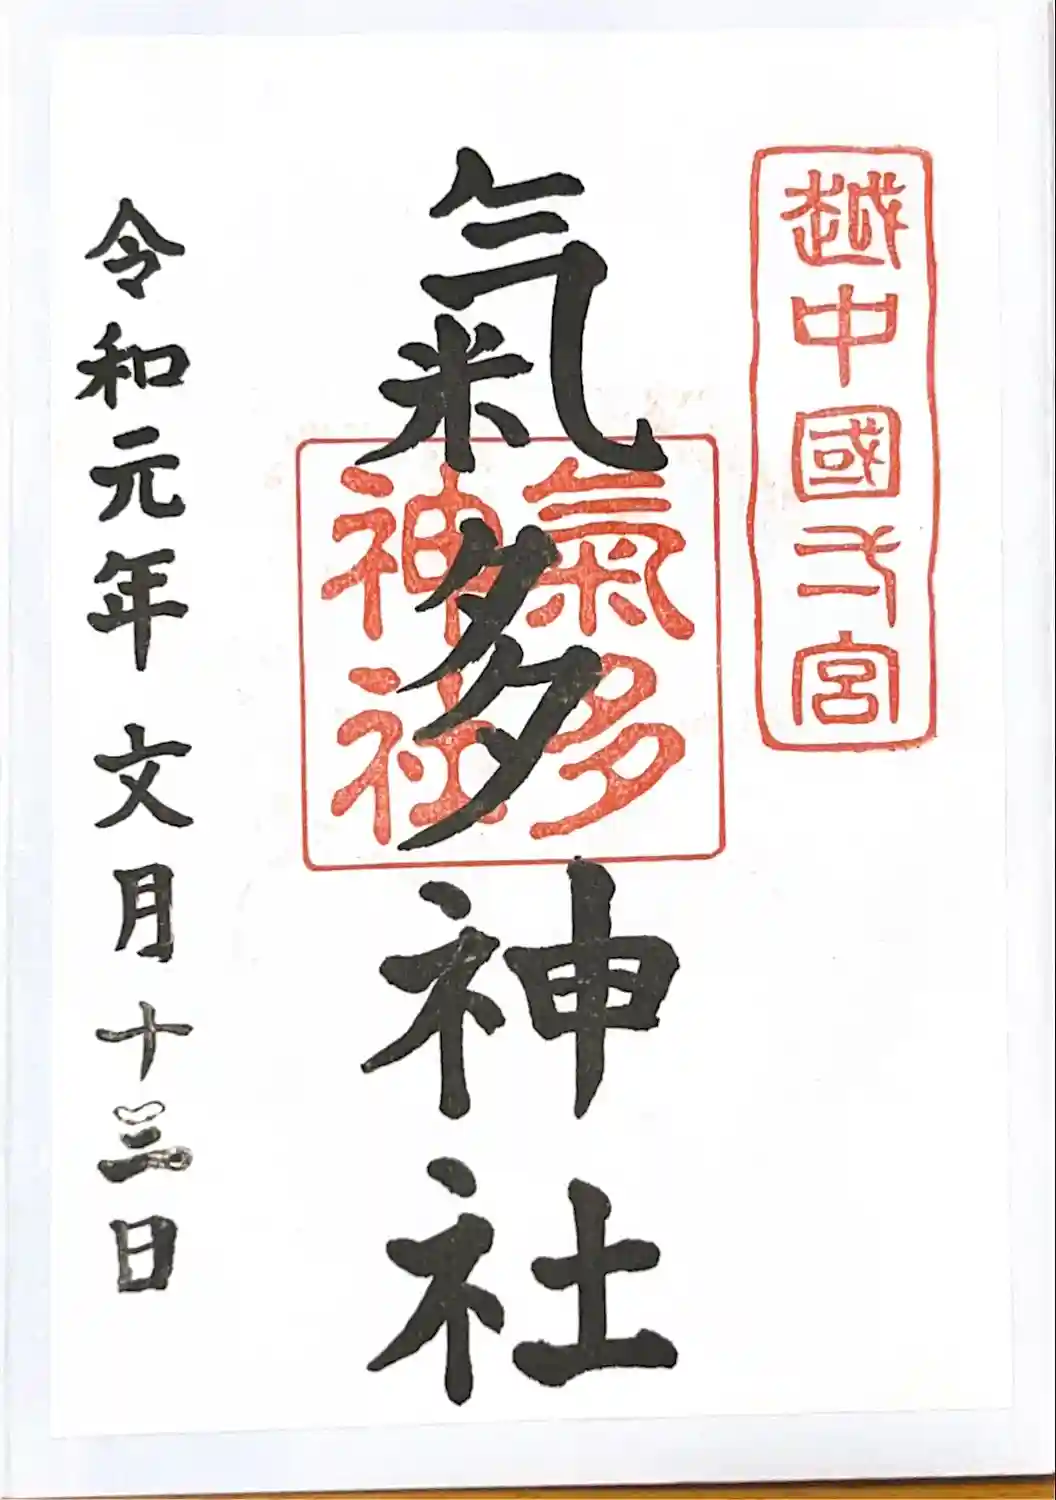 越中國弌宮
氣多神社
氣多
神社
令和元年 文月十三日